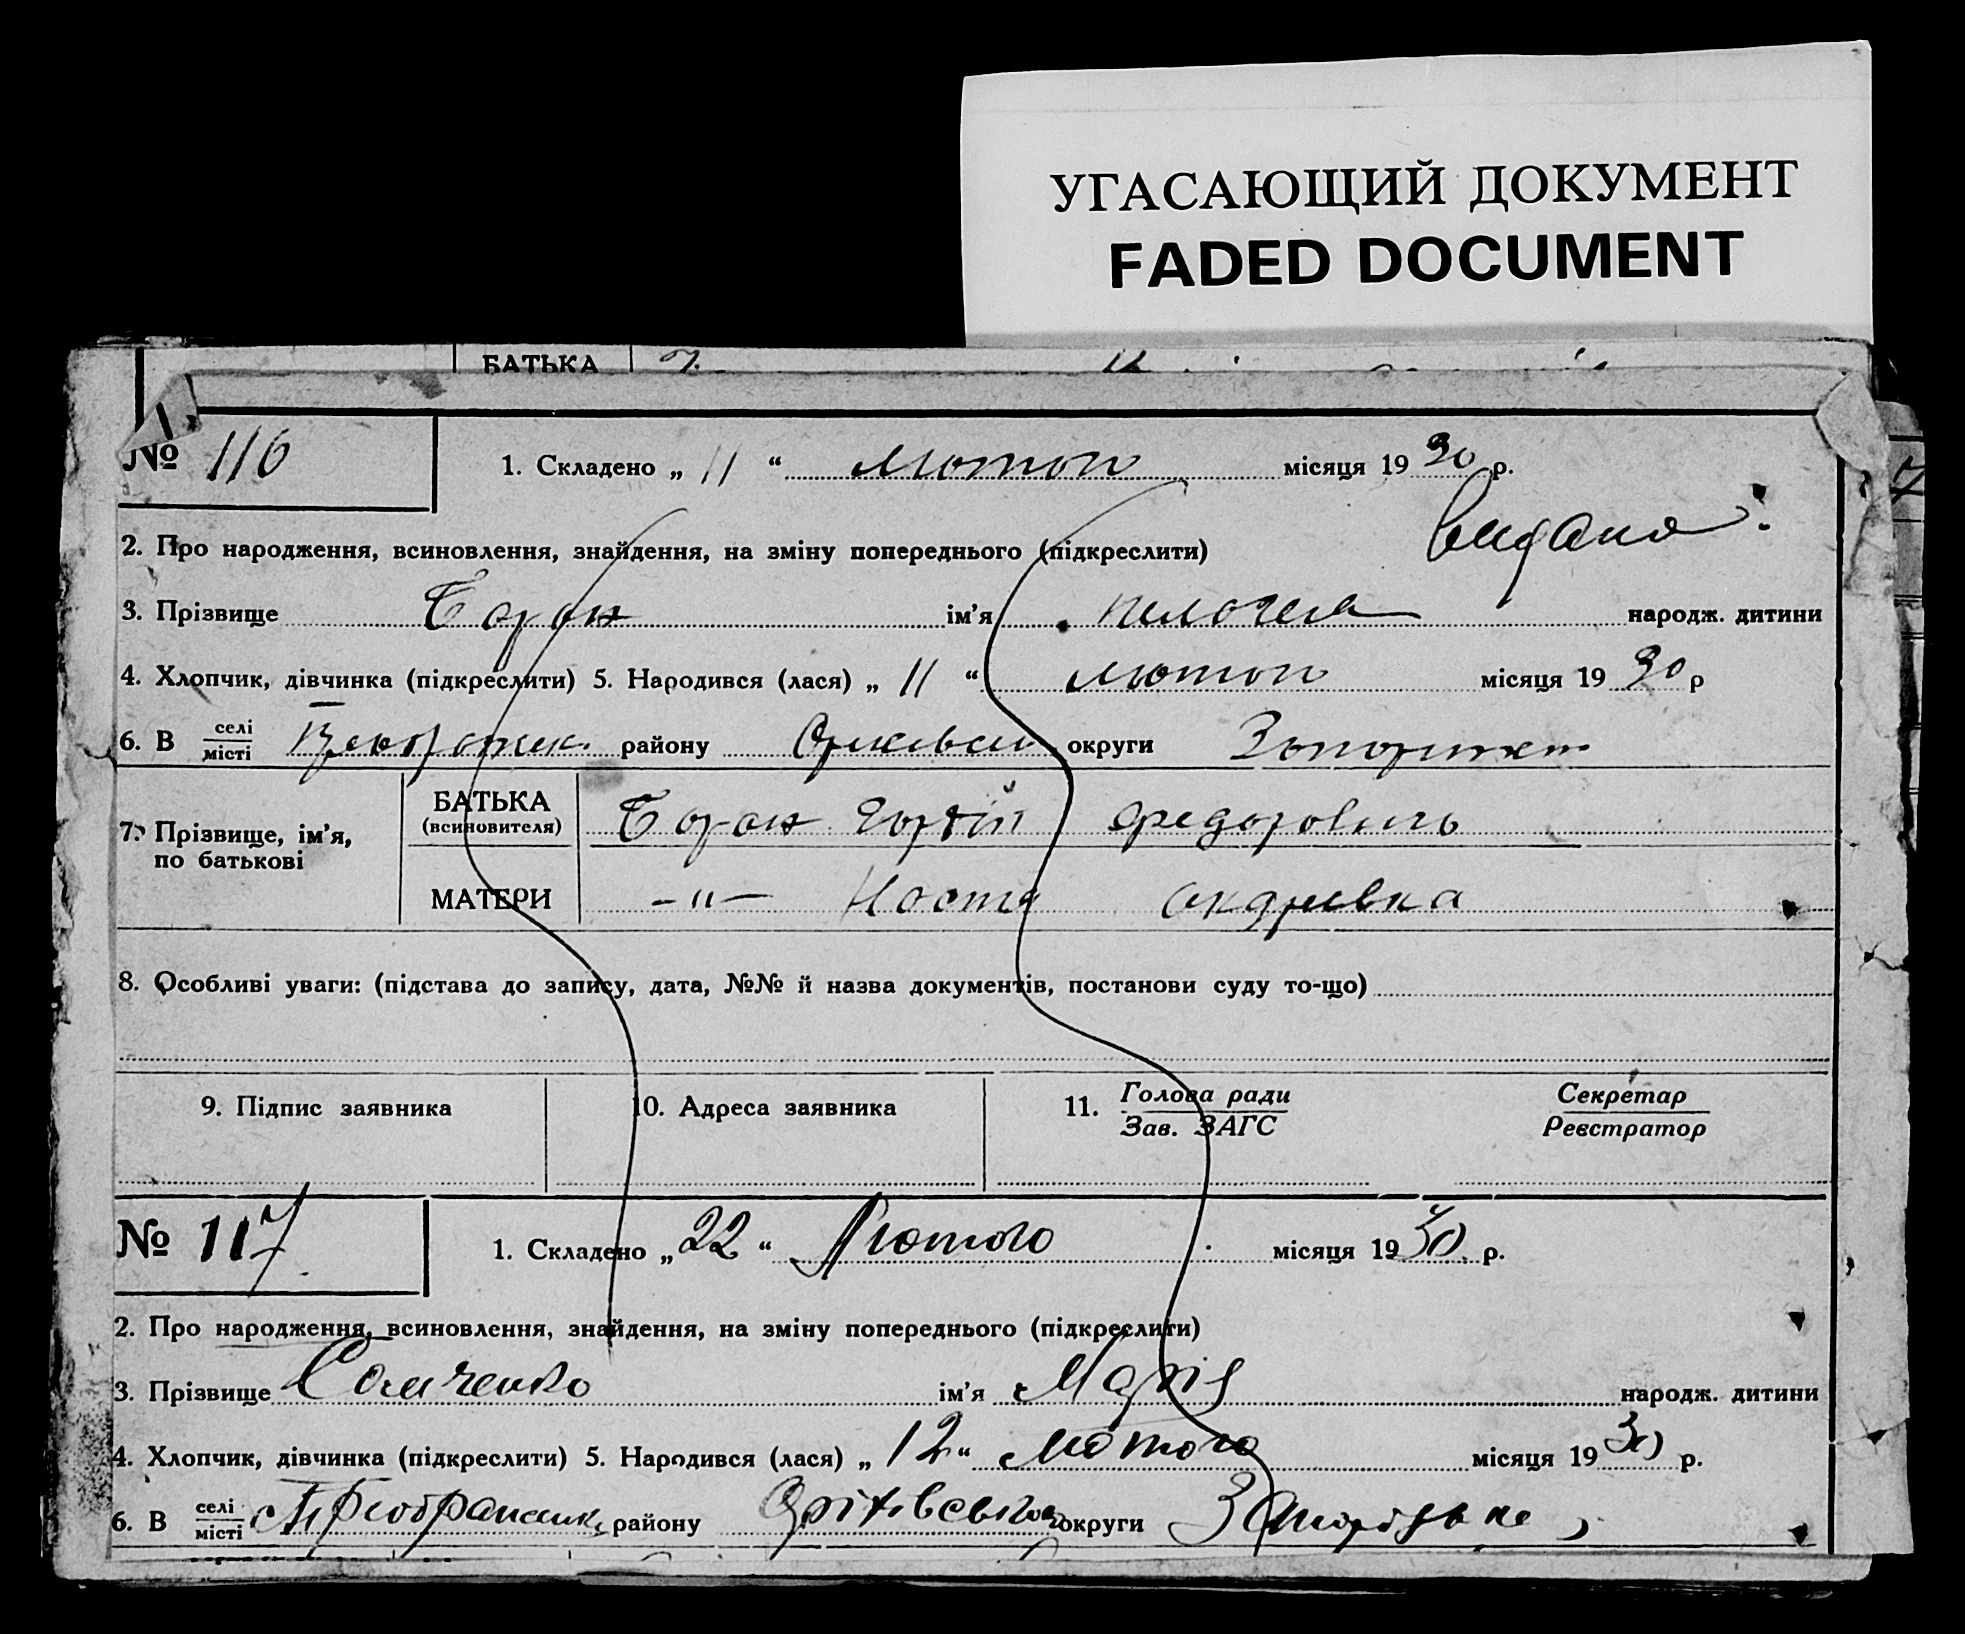 УГАСАЮЩИЙ ДОКУМЕНТ
FADED DOCUMENT
БАТЬКА
№ 116 1. Складено „ 11 “ лютого місяця 19 30 р.
видано
2. Про народження, всиновлення, знайдення, на зміну попереднього (підкреслити)
3. Прізвище Баран ім’я Пелагея народж. дитини
4. Хлопчик, дівчинка (підкреслити) 5. Народився (лася) „ 11 “ лютого місяця 19 30 р
6. В селі/місті району округи
7. Прізвище, ім’я, по батькові
БАТЬКА (всиновителя) Баран Федорович
МАТЕРИ —"— Настя Андреевна
8. Особливі уваги: (підстава до запису, дата, №№ й назва документів, постанови суду то-що)
9. Підпис заявника 10. Адреса заявника 11. Голова ради/Зав. ЗАГС Секретар/Реєстратор
№ 117 1. Складено „ 22 “ Лютого місяця 19 30 р.
2. Про народження, всиновлення, знайдення, на зміну попереднього (підкреслити)
3. Прізвище Самченко ім’я Марія народж. дитини
4. Хлопчик, дівчинка (підкреслити) 5. Народився (лася) „ 12 “ Лютого місяця 19 30 р.
6. В селі/місті району округи